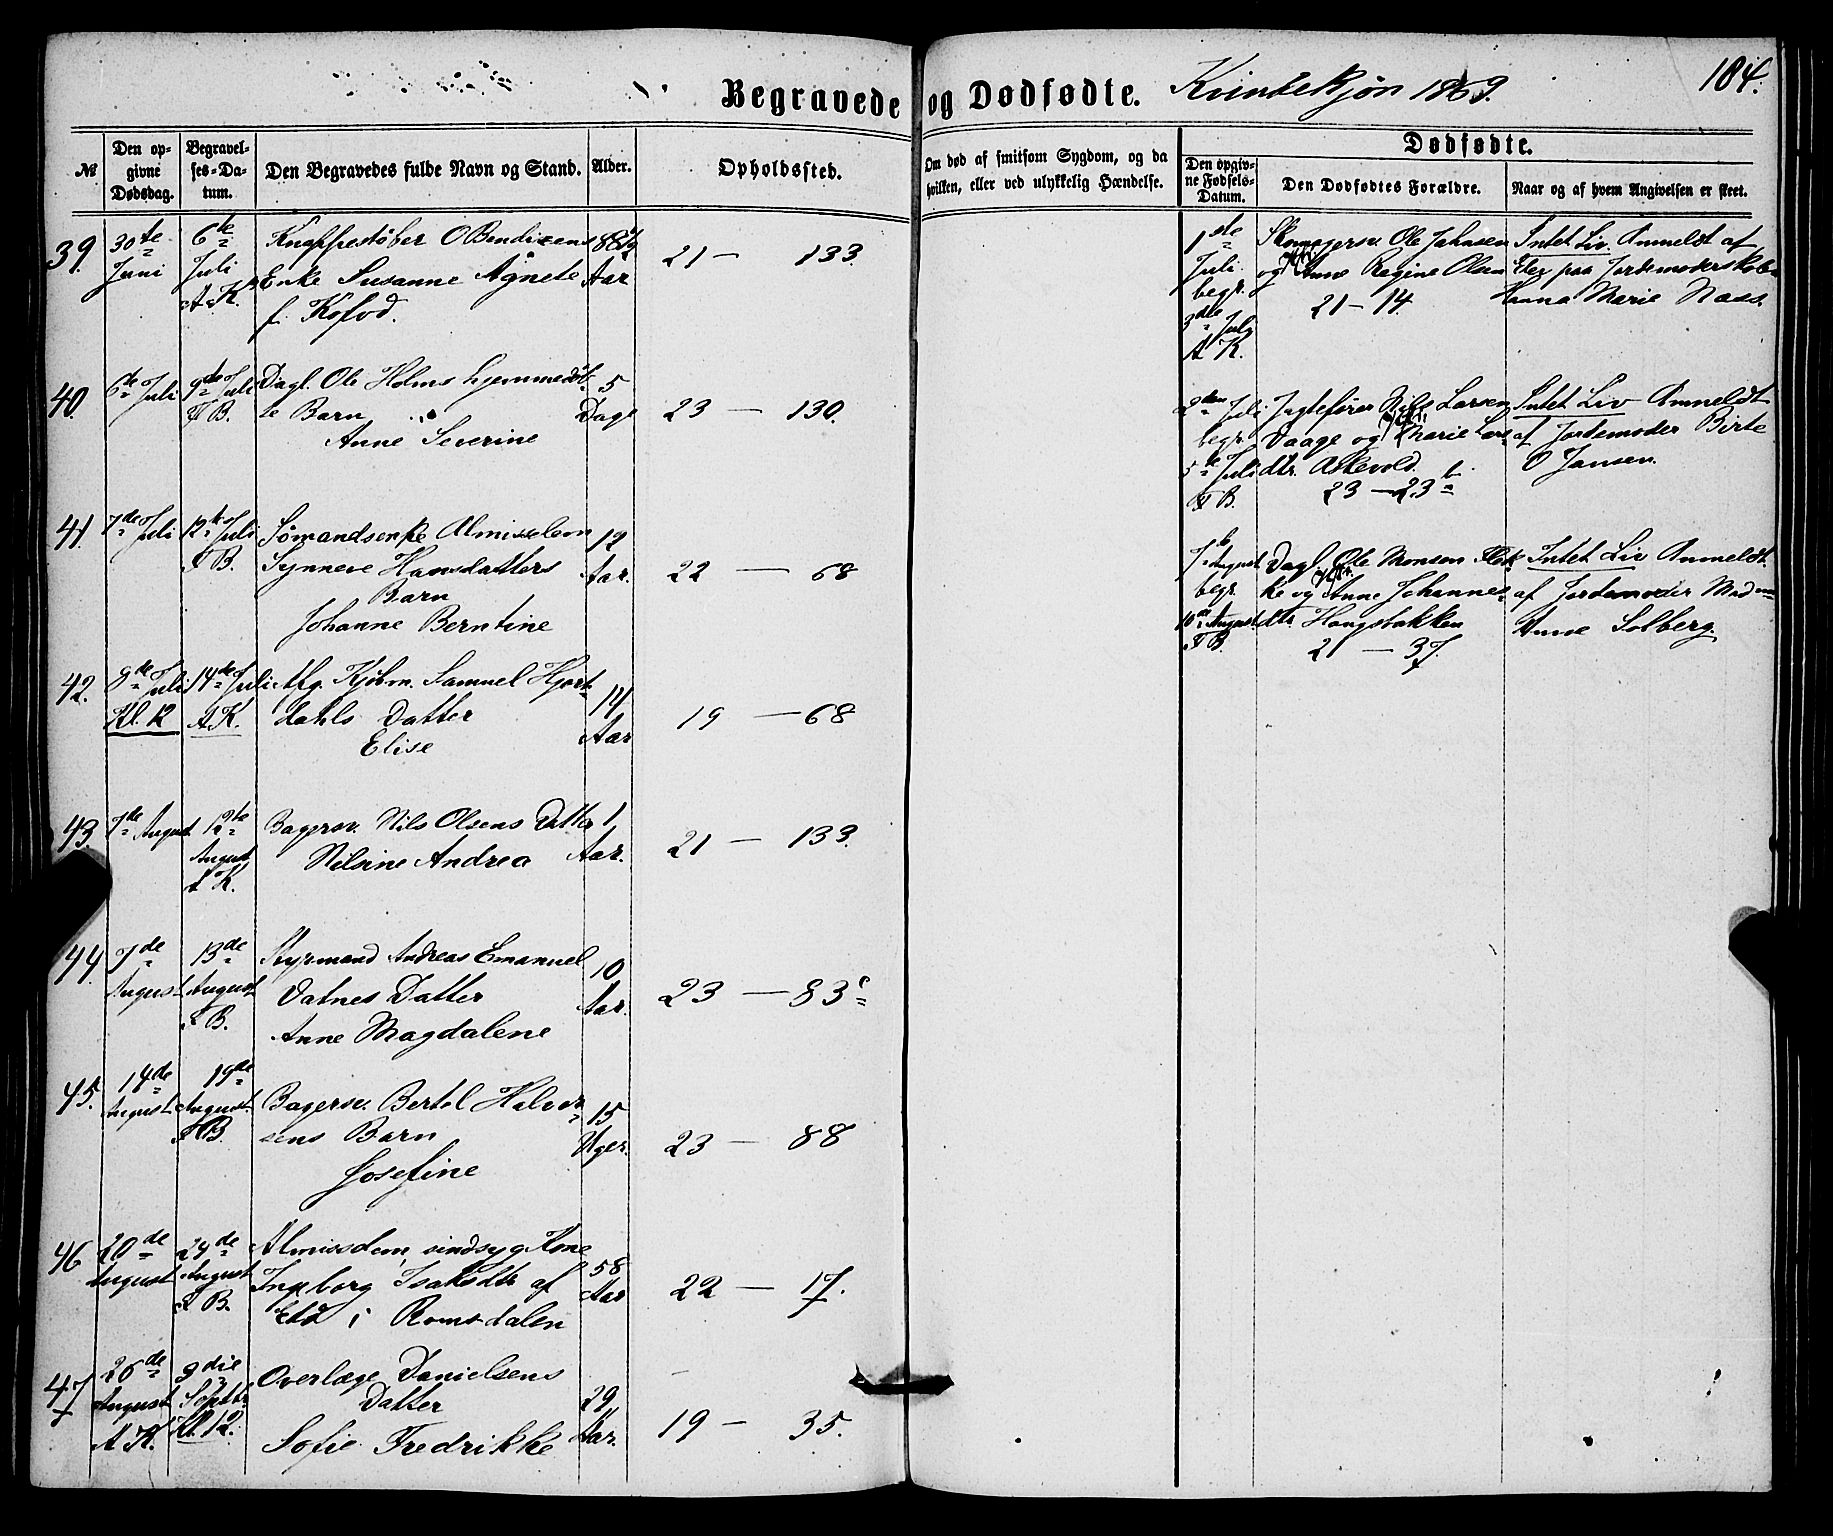 Begravede og Dødfødte. Kvindekjøn 1869.
184.
№
Den opgivne Dødsdag.
Begravelses-Datum.
Den Begravedes fulde Navn og Stand.
Alder.
Opholdssted.
Om død af smitsom Sygdom, og da hvilken, eller ved ulykkelig Hændelse.
Dødfødte.
Den opgivne Fødsels-Datum.
Den Dødfødtes Forældre.
Naar og af hvem Angivelsen er skeet.
39. 30te Juni
6te Juli A. K.
Knappestøber O Bendixens
Enke Susanne Agnete
f. Kofod.
Aar
21 — 133.
40. 6te Juli
9de Juli T B.
Dagl. Ole Holms hjemmedøb-
te Barn
Anne Severine
5 Dage
23 — 130.
41. 7de Juli
12te Juli T B.
Sømandsenke Almisselem
Synneve Hansdatters
Barn
Johanne Berntine
12 Aar.
22 — 68
42. 8de Juli Kl. 12
14de Juli A K.
Afg. Kjøbm. Samuel Hjort-
dahls Datter
Elise
14 Aar
19 — 68
43. 7de August
12te August A K.
Bagersv. Nils Olsens Datter
Nilsine Andrea
1 Aar.
21 — 133.
44. 7de August
13de August T B.
Styrmand Andreas Emanuel
Vatnes Datter
Anne Magdalene
10 Aar.
23 — 83c
45. 14de August
19de August T B.
Bagersv. Bertel Halvor-
sens Barn
Josefine
15 Uger.
23 — 88
46 20de August
24de August T B.
Almisselem, sindsyg Kone
Ingeborg Isaksdtr af
Eid i Romsdalen
58 Aar
22 — 17.
47 26de August A K.
3die Septbr. Kl. 12.
Overlæge Danielsens
Datter
Sofie Fredrikke
29 Aar.
19 — 35.
1ste Juli begr. 3die July A K.
Skomagersv. Ole Johnsen
og Anne Regine Olsen
21 — 14.
Intet Liv. Anmeldt af
Elev paa Jordemoderskolen
Hanna Marie Naas.
2den Juli begr. 5te Juli T B.
Jægtefører Nils Larsen
Vaage og Marie Lars-
dtr. Askevold.
23 — 23b
Intet Liv Anmeldt
af Jordemoder Birte
O Jansen.
7de August begr. 10de August T B.
Dagl. Ole Monsen
ke og Anne Johannes-
dtr. Haugsbakken
21 — 37.
Intet Liv Anmeldt
af Jordemoder Madm
Anne Solberg